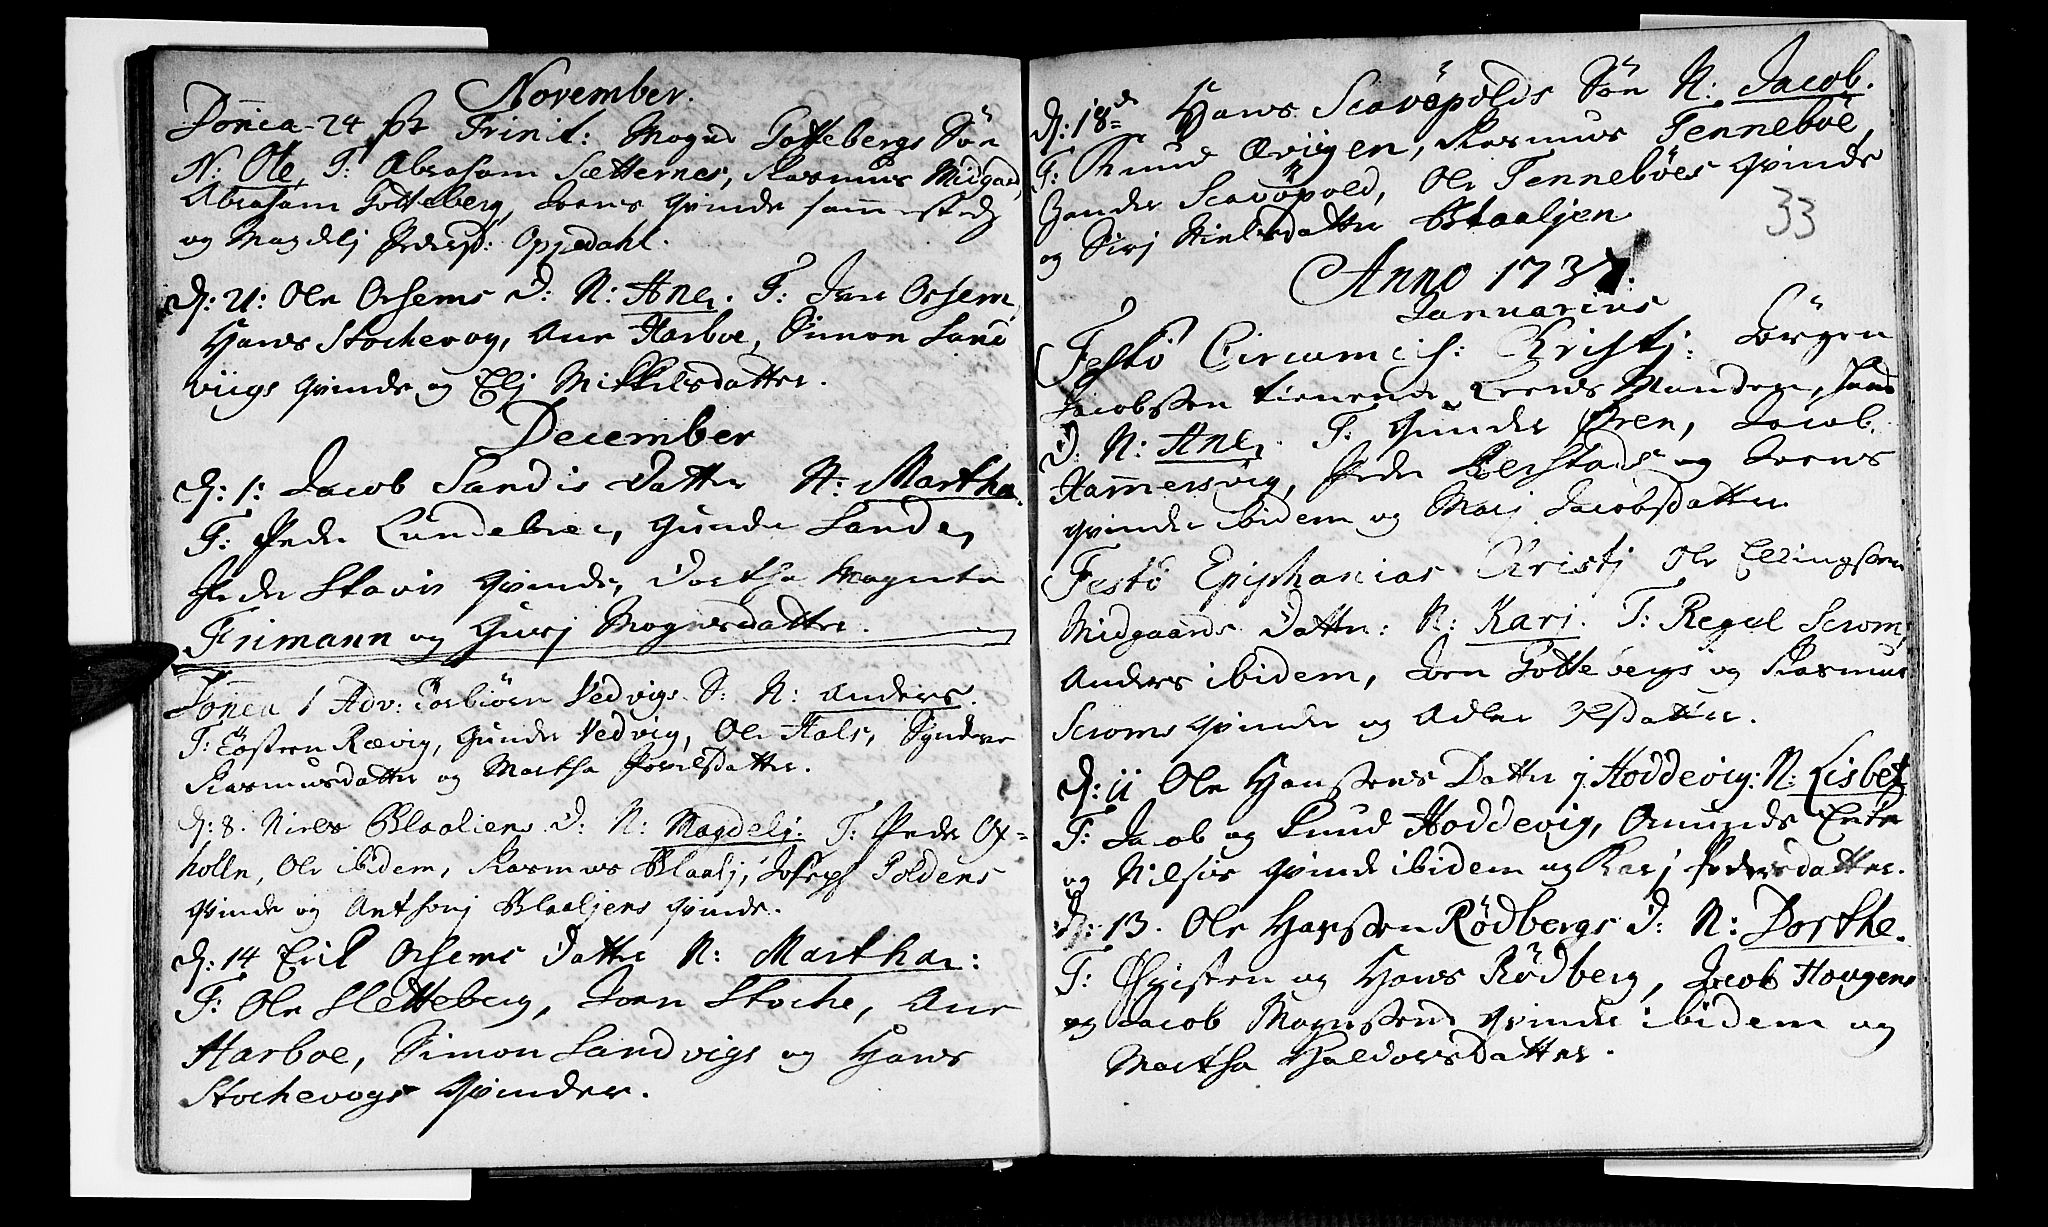 November.
Domca 24 pt Trinit: Mogns Gottebergs Søn
N: Ole, F: Abraham Sætternes, Rasmus Midgaard
Abraham Gotteberg, Joens Qvinde sammestedz
og Magdelj Pedersd: Oppedahl.
D: 21: Ole Orsems D: N: Ane. F: Iver Orsem,
Hans Stochevog, Ane Harboe, Simon Sand
viigs Qvinde og Elj Mikkelsdatter.
December
D: 1: Jacob Sandis Datter N: Martha.
F: Peder Lundebrec, Gunder Sande,
Peder Stavis Qvinde, Dorthe Magreta
Frimann og Gurj Mognsdatter.
Domca 1 Adv: Torbiørn Vedvigs S: N: Anders.
F: Tosten Rævig, Gunder Vedvig, Ole Hals, Synneve
Rasmusdatter og Martha Povelsdatter.
D: 8. Niels Blaaliens D: N: Magdelj. F: Peder Ox=
holle, Ole ibidem, Rasmus Blaalj, Joseph Poldens
Qvinde og Anthonj Blaaljens Qvinde.
D: 14 Erik Orsems Datter N: Martha:
F: Ole Sletteberg, Joen Stoche, Ane
Harboe, Simon Sandvigs og Hans
Stochevogs Qvinder.
D: 18de Hans Scavøpolds Søn N: Jacob.
F: Knud Ervigen, Rasmus Tennebøe,
Zander Scavøpold, Ole Tennebøes Qvinde
og Sirj Nielsdatter Blaaljen
33
Anno 1737.
Januarius
Festo Circumcis: Kristj: Jørgen
Jacobssen tienende Leens Manden, hans
D: N: Ane. F: Gunder Øren, Jacob
Hammersvig, Peder Berstads og Joens
Qvinder ibidem og Marj Jacobsdatter
Festo Epiphanias Kristj Ole Ellingsøen
Midgaards Datter: N: Karj. F: Regal Scrom,
Anders ibidem, Joen Gottebergs og Rasmus
Scroms Qvinder og Adlac Olsdatter.
D: 11 Ole Hanssens Datter j Hoddevig: N: Lisbet
F: Jacob og Knud Hoddevig, Omunds Enke
og Nilsis Qvinde ibidem og Karj Pedersdatter.
D: 13. Ole Hanssen Rødbergs D: N: Dorthe.
F: Øysten og Hans Rødberg, Jacob Hougens
og Jacob Mognssens Qvinde ibidem og
Martha Haldorsdatter.